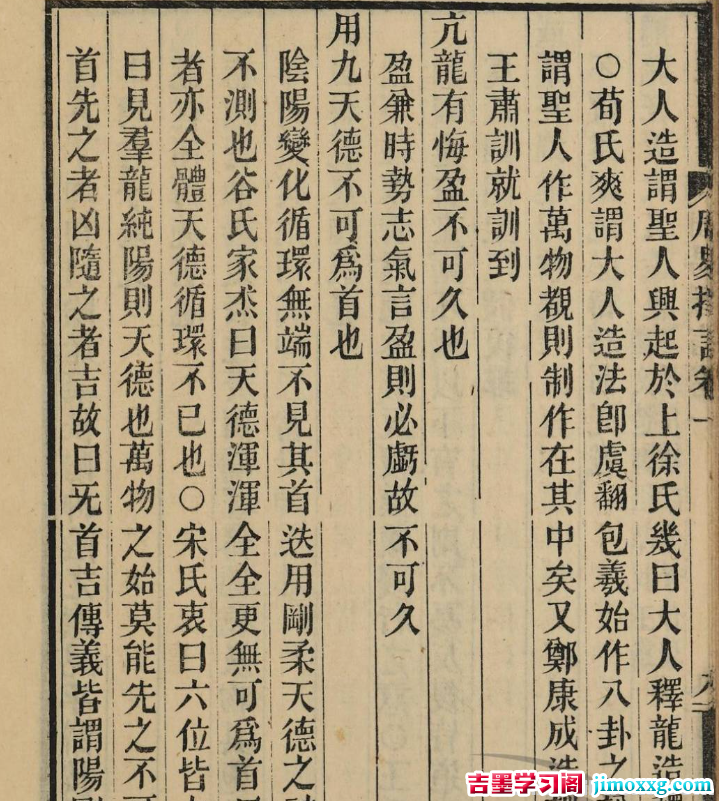 大人造謂聖人興起於上徐氏幾曰大人釋龍造
○荀氏爽謂大人造法卽虞翻包羲始作八卦之
謂聖人作萬物覩則制作在其中矣又鄭康成造
王肅訓就訓到
亢龍有悔盈不可久也
盈兼時勢志氣言盈則必虧故不可久
用九天德不可爲首也
陰陽變化循環無端不見其首迭用剛柔天德之
不測也谷氏家杰曰天德渾渾全全更無可爲首
者亦全體天德循環不已也○宋氏衷曰六位皆
曰見羣龍純陽則天德也萬物之始莫能先之不
首先之者凶隨之者吉故曰旡首吉傳義皆謂陽
卷一
吉墨学习阁 jimoxxg.com